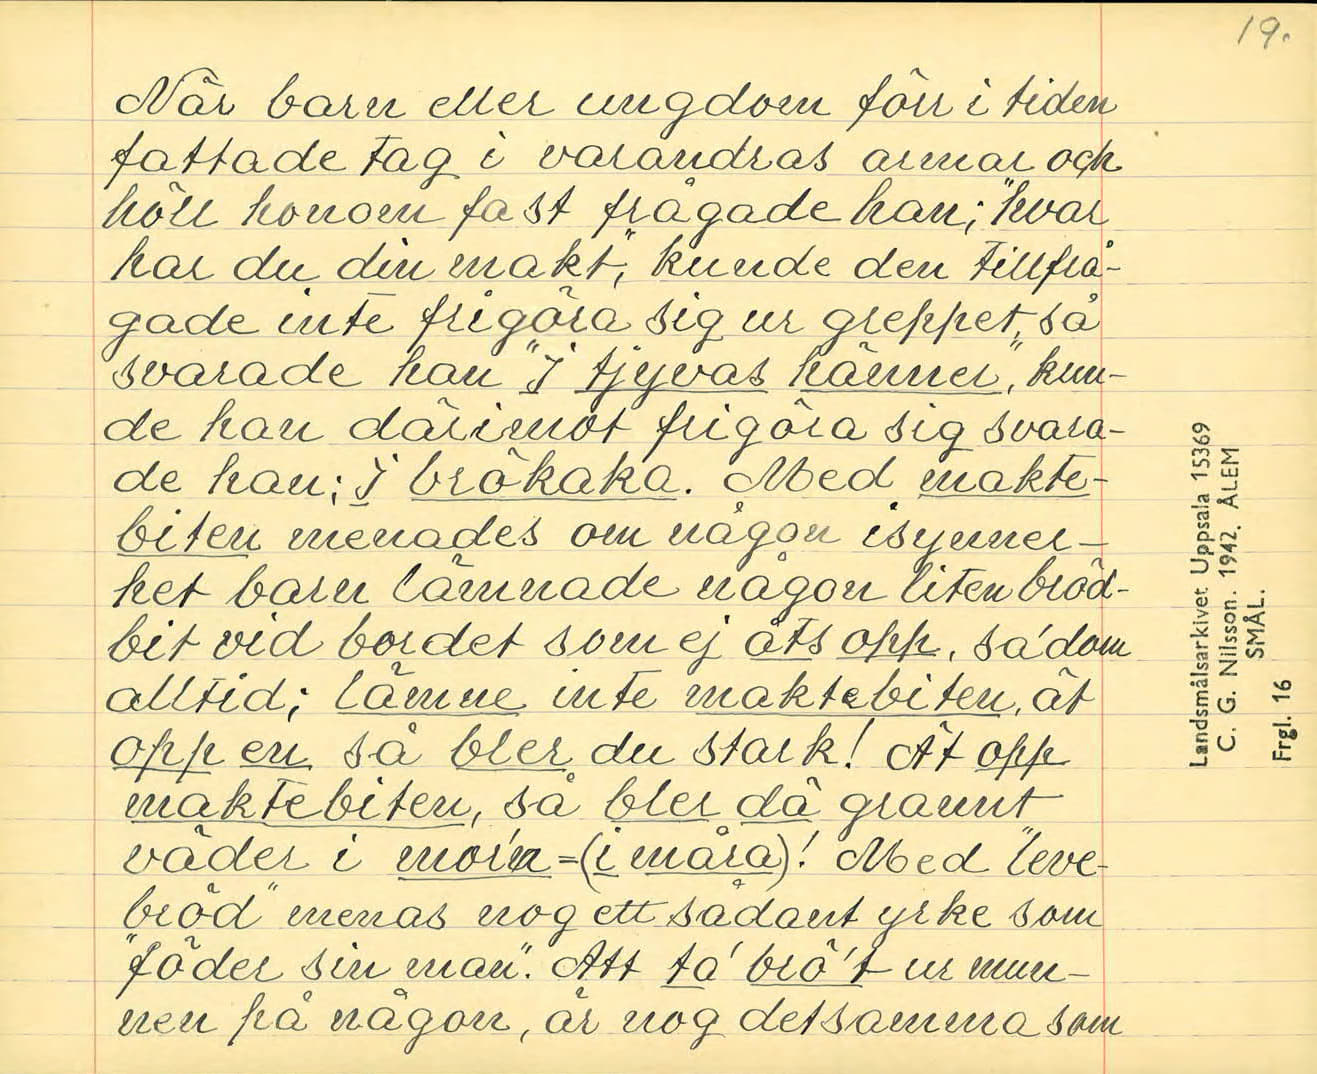 19.
När barn eller ungdom förr i tiden
fattade tag i varandras armar och
höll honom fast frågade han; "hvar
har du din makt", kunde den tillfrå-
gade inte frigöra sig ur greppet, så
svarade han "I tjyvas hänner", kun-
de han därimot frigöra sig svara-
de han; I brökaka. Med makte-
biten menades om någon isynner-
het barn lämnade någon liten bröd-
bit vid bordet som ej åts opp, sa' dom
alltid; lämne inte maktebiten, ät
opp en så bler du stark! Ät opp
maktebiten, så bler dä grannt
väder i mor'n =(i måra)! Med "leve-
bröd" menas nog ett sådant yrke som
"föder sin man". Att ta' brö't ur mun-
nen på någon, är nog detsamma som
Landsmålsarkivet Uppsala 15369
C. G. Nilsson. 1942. ÅLEM
SMÅL.
Frgl. 16